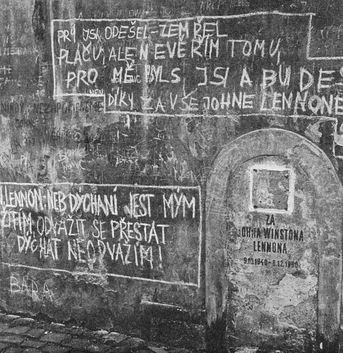 PRÝ JSI ODEŠEL-ZEMŘEL
PLAČU, ALE NEVĚŘÍM TOMU,
PRO MĚ BYLS JSI A BUDE
DÍKY ZA VŠE JOHNE LENNONE
LENNON, NEB DÝCHANÍ JEST MÝM
ŽITÍM ODVÁŽIT SE PŘESTÁT
DÝCHAT NEODVAŽIM!
BÁRA
ZA
JOHNA WINSTONA
LENNONA
9.10.1940-8.12.1980